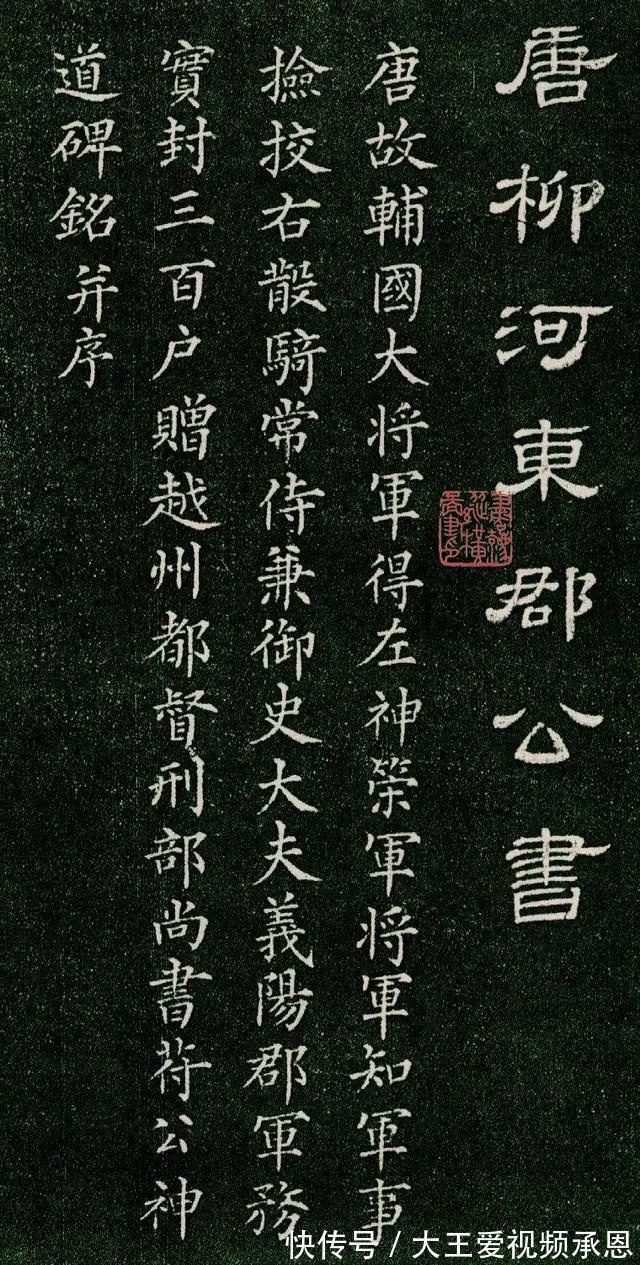 唐柳河東郡公書
唐故輔國大将軍得左神筞軍将軍知軍事
撿挍右散騎常侍兼御史大夫義陽郡軍務
實封三百户贈越州都督刑部尚書苻公神
道碑銘并序
快传号 / 大王爱视频承恩